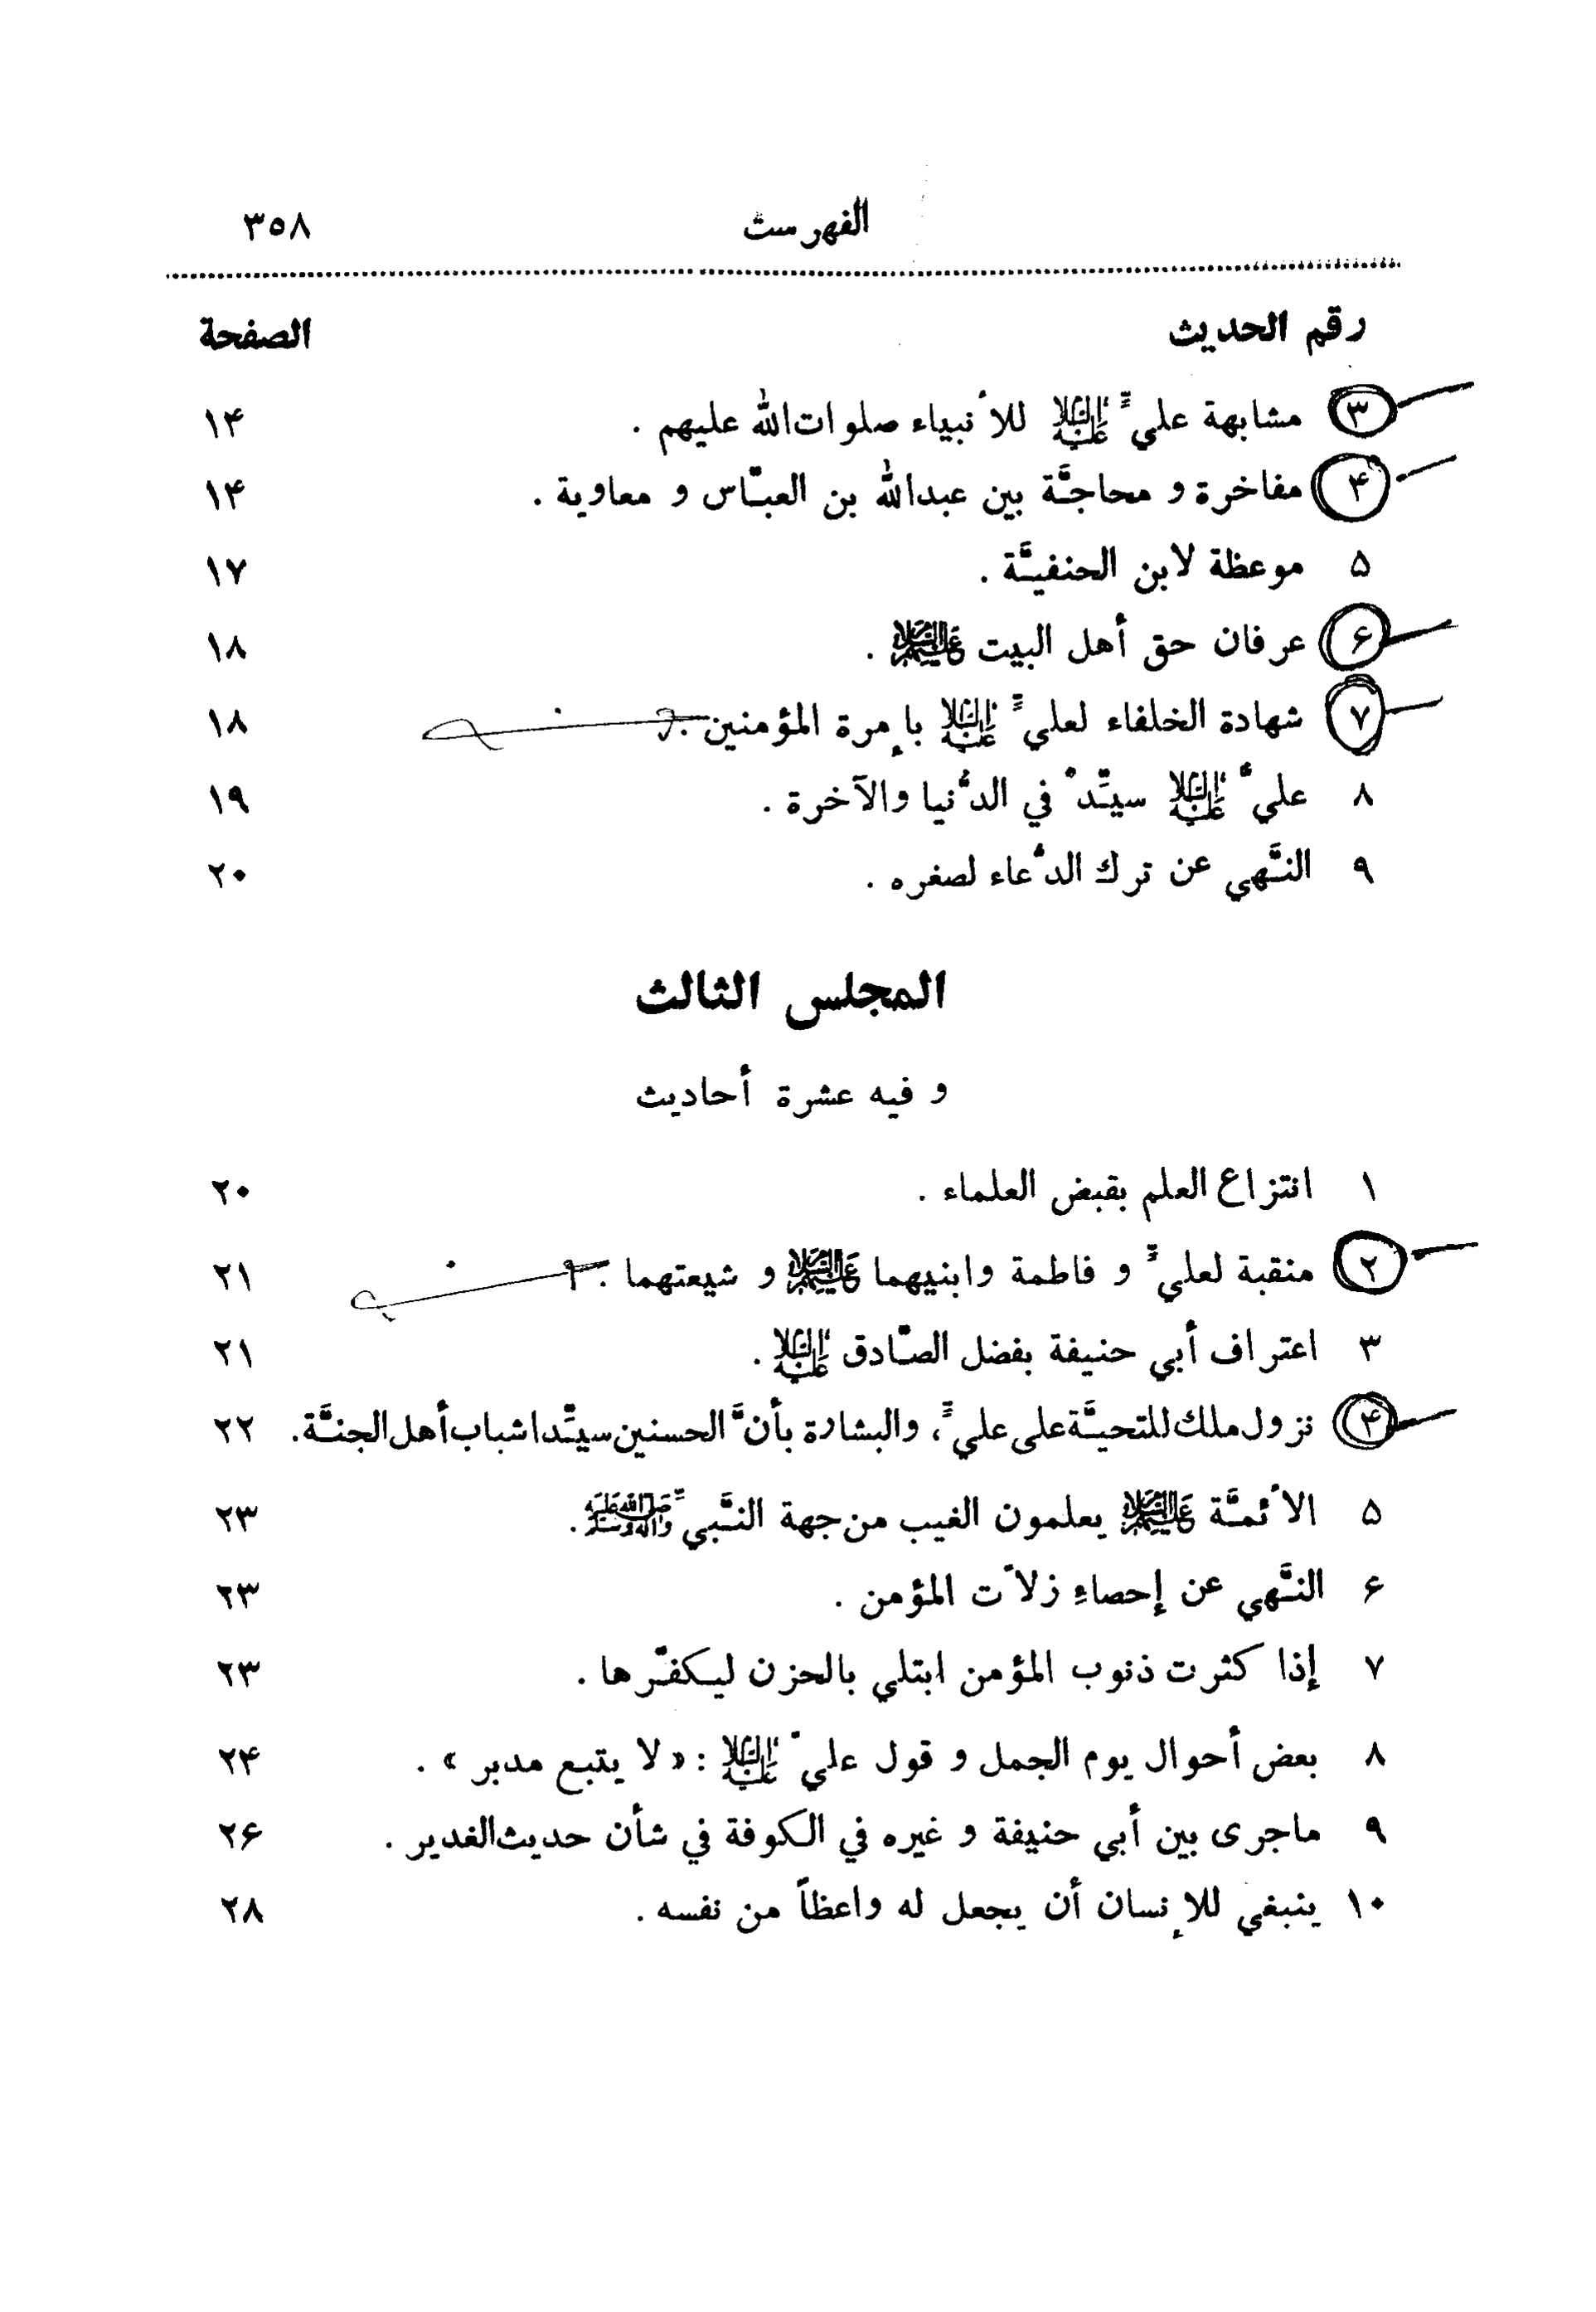 الفهرست ٣٥٨
رقم الحديث الصفحة
٣ مشابهة عليٍّ عليه‌السلام للأنبياء صلوات‌الله عليهم . ١۴
۴ مفاخرة و محاجّة بين عبدالله بن العبّاس و معاوية . ١۴
۵ موعظة لابن الحنفيّة . ١٧
۶ عرفان حق أهل البيت عليهم‌السلام . ١٨
٧ شهادة الخلفاء لعليٍّ عليه‌السلام بإمرة المؤمنين . ١٨
٨ عليٌّ عليه‌السلام سيّدٌ في الدُّنيا والآخرة . ١٩
٩ النَّهي عن ترك الدُّعاء لصغره . ٢٠
المجلس الثالث
و فيه عشرة أحاديث
١ انتزاع العلم بقبض العلماء . ٢٠
٢ منقبة لعليٍّ و فاطمة وابنيهما عليهم‌السلام و شيعتهما . ٢١
٣ اعتراف أبي حنيفة بفضل الصّادق عليه‌السلام . ٢١
۴ نزول ملك للتحيّة على عليٍّ ، والبشارة بأنَّ الحسنين سيّدا شباب أهل الجنّة . ٢٢
۵ الأئمّة عليهم‌السلام يعلمون الغيب من جهة النَّبيّ صلى‌الله‌عليه‌وآله‌وسلم . ٢٣
۶ النَّهي عن إحصاءِ زلاّت المؤمن . ٢٣
٧ إذا كثرت ذنوب المؤمن ابتلي بالحزن ليكفّرها . ٢٣
٨ بعض أحوال يوم الجمل و قول عليّ عليه‌السلام : « لا يتبع مدبر » . ٢۴
٩ ماجرى بين أبي حنيفة و غيره في الكوفة في شأن حديث‌الغدير . ٢۶
١٠ ينبغي للإنسان أن يجعل له واعظاً من نفسه . ٢٨